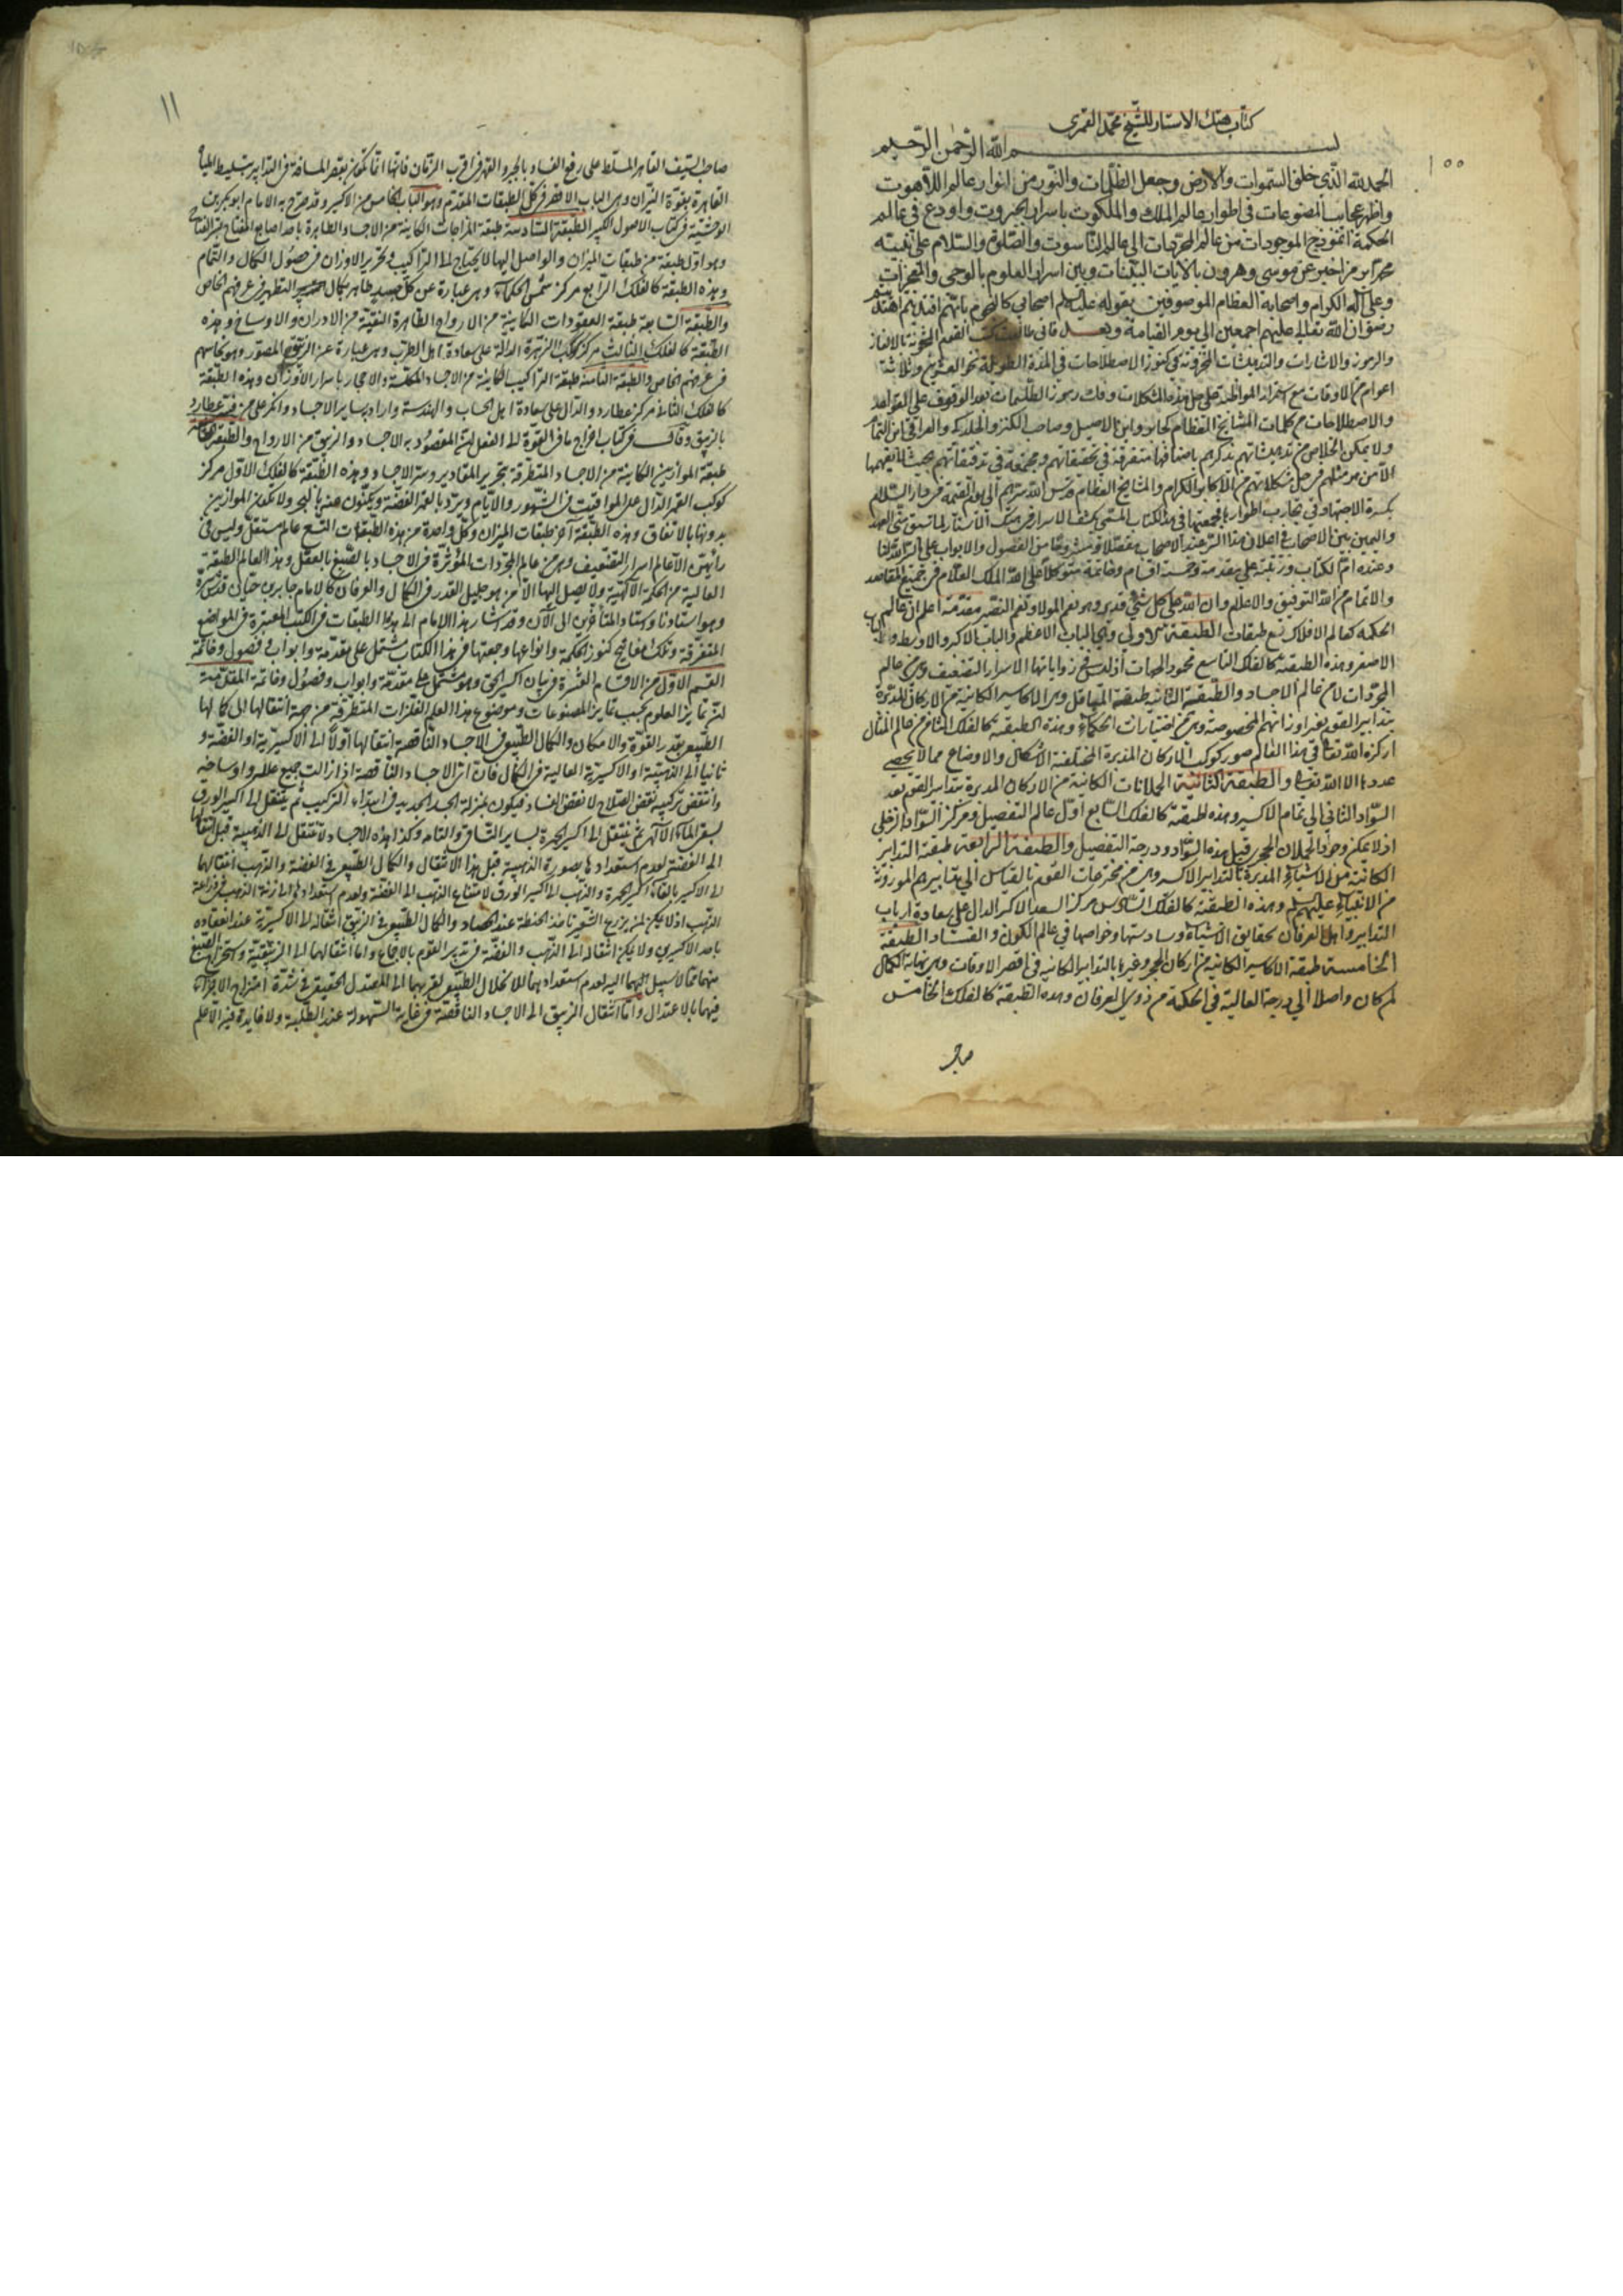 كتاب هتك الاستار للشيخ محمد القمرى
بسم الله الرحمن الرحيم
١٠٠
الحمد لله الذى خلق السموات والارض وجعل الظلمات والنور من انوار عالم اللاهوت
واظهر عجايب المصنوعات فى اطوار عالم الملك والملكوت باسرار الجبروت واودع فى عالم
الحكمة انموذج الموجودات من عالم المجردات الى عالم الناسوت والصلوة والسلام على نبيه
محمد من اخبر عن موسى وهرون بالايات البينات وبين اسرار العلوم بالوحى والمعجزات
وعلى آله الكرام واصحابه العظام الموصوفين بقوله عليه السلم اصحابى كالنجوم بايهم اقتديتم اهتديتم
رضوان الله تعالى عليهم اجمعين الى يوم القيامة وبعد فانى القوم المخزونة بالالغاز
والرموز والاشارات والتدهيشات المخزونة فى كنوز الاصطلاحات فى المدة الطويلة نحو العشرين وثلاثة
اعوام من الاوقات مع استمرار المواظبة على حل هذه المشكلات وفك رموز الطلسمات بعد الوقوف على القواعد
والاصطلاحات من كلمات المشايخ العظام كجابر وابن الاصيل وصاحب الكنز والجلدكى والعراقى ابن التمام
ولا يمكن الخلاص من تدهيشاتهم بذكرهم باصنافها متفرقة فى تحقيقاتهم ومجتمعة فى تدقيقاتهم بحيث لا يفهمها
الا من هو مثلهم فى حل مشكلاتهم من الاكابر الكرام والمشايخ العظام قدس الله سرهم الى يوم القيمة فى دار السلام
بكثرة الاجتهاد فى تجارب اطوارها فجمعتها فى هذا الكتاب المسمى بكشف الاسرار فى هتك الاستار لما سبق منى العهد
واليمين بين الاصحاب فى اعلان هذا السر عند الاصحاب مفصلا ومشروحا من الفصول والابواب على
وعنده ام الكتاب ورتبته على مقدمة وخمسة اقسام وخاتمة متوكلا على الله الملك العلام فى جميع المقاصد
والاتمام من الله التوفيق والاعلام وان الله على كل شئ قدير وهو نعم المولى ونعم النصير مقدمة اعلم ان عالم
الحكمة كعالم الافلاك تسع طبقات الطبقة الاولى وهى الباب الاعظم والباب الاكبر والاوسط والباب
الاصغر وهذه الطبقة كالفلك التاسع محدد الجهات اذ ليس فى زواياتها الا سرار التضعيف وهى عالم
المجردات لا من عالم الاجساد والطبقة الثانية طبقة وهى الاكاسير الكائنة من الاركان المدبرة
بتدابير القوم بغير اوزانهم المخصوصة وهى من اختيارات الحكماء وهذه الطبقة كالفلك الثامن من عالم المثال
اركزه الله تعالى فى هذا العالم صور كوكب الاركان المدبرة المختلفة الاشكال والاوضاع مما لا يحصى
عددها الا الله تعالى والطبقة الثالثة الحملانات الكائنة من الاركان المدبرة بتدابير القوم بعد
السواد الثانى الى تمام الاكسير وهذه الطبقة كالفلك السابع اول عالم التفصيل ومركز السواد الزحلى
اذ لا يمكن وجود الحملان الحجرى قبل هذه السواد ودرجة التفصيل والطبقة الرابعة طبقة التدابير
الكائنة من الاشياء المدبرة بالتدابير الاكسيرية وهى من مخترعات القوم بالقياس الى تدابيرهم الموروثة
من الانبياء عليهم السلم وهذه الطبقة كالفلك السادس مركز السعد الاكبر الدال على سعادة ارباب
التدابير واهل العرفان بحقايق الاشياء وسادستها وخواصها فى عالم الكون والفساد الطبقة
الخامسة طبقة الاكاسير الكائنة من اركان الحجر وغيرها بالتدابير الكائنة فى اقصر الاوقات وهى نهاية الكمال
لمن كان واصلا الى درجة العالية فى الحكمة من ذوى العرفان وهذه الطبقة كالفلك الخامس
صاحب
١١
صاحب السيف القاهر المسلط على رفع الفساد بالجبر والقهر فى اقرب الزمان فانها انما تكون بقصر المسافة فى التدابير بتسليط الطبايع
القاهرة بقوة النيران وهى الباب الاقصر فى كل الطبقات المتقدم وهو الباب الخامس من الاكسير وقد صرح به الامام ابو بكر بن
الوحشية فى كتاب الاصول الكبير الطبقة السادسة طبقة المزاجات الكاينة من الاجساد الطاهرة باحد اصابع المفتاح
وهو اول طبقة من طبقات الميزان والواصل اليها لا يحتاج الى التراكيب وتحرير الاوزان فى حصول الكمال والتمام
وهذه الطبقة كالفلك الرابع مركز شمس الحكماء وهى عبارة عن كل جسد طاهر بكمال التطهير فى عرفهم الخاص
والطبقة السابعة طبقة المعقودات الكاينة من الارواح الطاهرة النقية من الادران والاوساخ وهذه
الطبقة كالفلك الثالث مركز كوكب الزهرة الدالة على سعادة اهل الطرب وهى عبارة عن الزيبق المصور وهو نحاسهم
فى عرفهم الخاص والطبقة الثامنة طبقة التراكيب الكاينة من الاجساد المكلسة والاحجار باسرار الاوزان وهذه الطبقة
كالفلك الثانى مركز عطارد والدال على سعادة اهل الحساب والهندسة واراد بساير الاجساد
بالزيبق وقال فى كتاب اخراج ما فى القوة الى الفعل المقصود به الاجساد والزيبق من الارواح والطبقة التاسعة
طبقة الموازين الكاينة من الاجساد المتطرقة بتحرير المقادير وستة الاجساد وهذه الطبقة كالفلك الاول مركز
كوكب القمر الدال على المواقيت فى الشهور والايام ويريد بالقمر الفضة ويكنون عنه ولا يمكن الموازين
بدونها بالاتفاق وهذه الطبقة آخر طبقات الميزان وكل واحدة من هذه الطبقات التسع عالم مستقل وليس فى
الا عالم اسرار التضعيف وهى من عالم المجردات المؤثرة فى الاجساد بالصبغ بالعقل وهذا العالم الطبقة
العالية من الحكمة الالهية ولا يصل اليها الا من هو جليل القدر فى الكمال والعرفان كالامام جابر بن حيان قدس سره
وهو استادنا واستاد المتأخرين الى الآن وقد اشار هذا الامام الى هذه الطبقات فى الكتب المعتبرة فى المواضع
المتفرقة وتلك مفاتيح كنوز الحكمة وانواعها وجمعتها فى هذا الكتاب مشتمل على مقدمة وابواب وفصول وخاتمة
القسم الاول من الاقسام العشرة فى بيان اكسير الحق وهو مشتمل على مقدمة وابواب وفصول وخاتمة المقدمة
ان تمايز العلوم بحسب تمايز المصنوعات وموضوع هذا العلم الفلزات المتطرقة من جهة انتقالها الى كمالها
الطبيعى بقدر القوة والامكان والكمال الطبيعى فى الاجساد الناقصة انتقالها اولا الى الاكسيرية او الفضة و
ثانيا الى الذهبية او الاكسيرية العالية فى الكمال فان اثر الاجساد الناقصة اذا زالت جميع علله واوساخه
وانتقض تركيبه نقض الصلاح لا نقض الفساد فيكون بمنزلة الجسد الجديد فى ابتداء التركيب ثم ينتقل الى اكسير الورق
بسقى الماء الالهى ثم ينتقل الى اكسير الحمرة بساير التساقى والتمام وكذا هذه الاجساد لا تنتقل الى الذهبية قبل انتقالها
الى الفضة لعدم استعدادها بصورة الذهبية قبل هذا الانتقال والكمال الطبيعى فى الفضة والذهب انتقالها
الى الاكسير بالقاء اكسير الحمرة والذهب الى اكسير الورق لامتناع الذهب الى الفضة ولعدم استعدادها الى رتبة الذهب
الذهب اذ لا يمكن لمن يزرع الشعير ياخذ الحنطة عند الحصاد والكمال الطبيعى فى الزيبق انتقاله الى الاكسيرية عند انعقاده
باحد الاكسيرين ولا يمكن انتقاله الى الذهب والفضة فى تدبير القوم بالاجماع واما انتقالهما الى الزيبقية
منهما فمما لا سبيل اليهما اليه لعدم استعدادهما للانحلال الطبيعى لقربهما الى المعتدل الحقيقى فى شدة امتزاج الاجزاء
فيهما بالاعتدال واما انتقال الزيبق الى الاجساد الناقصة فى غاية السهولة عند الطلبة ولا فايدة فيه الا علم